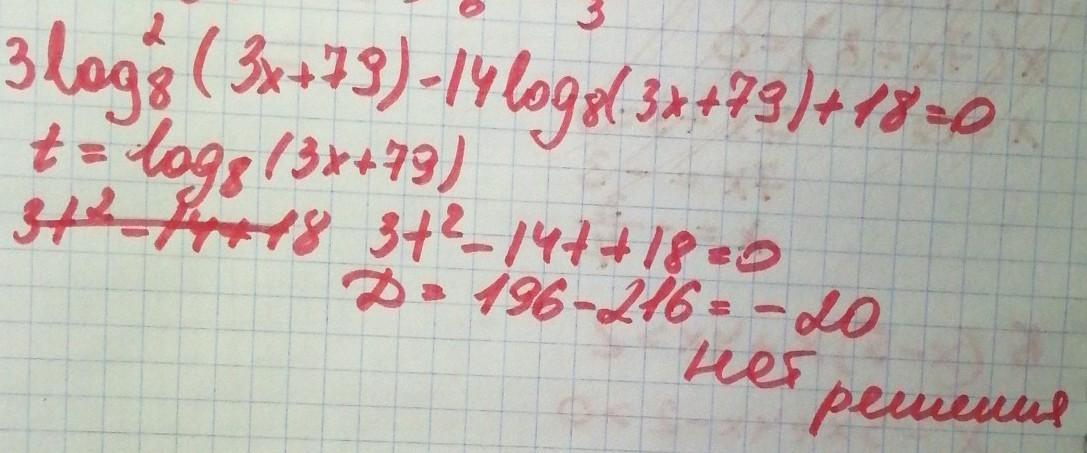 3log₈²(3x+79)-14log₈(3x+79)+18=0
t = log₈(3x+79)
3t²-14t+18 3t²-14t+18=0
D = 196-216 = -20
нет
решения